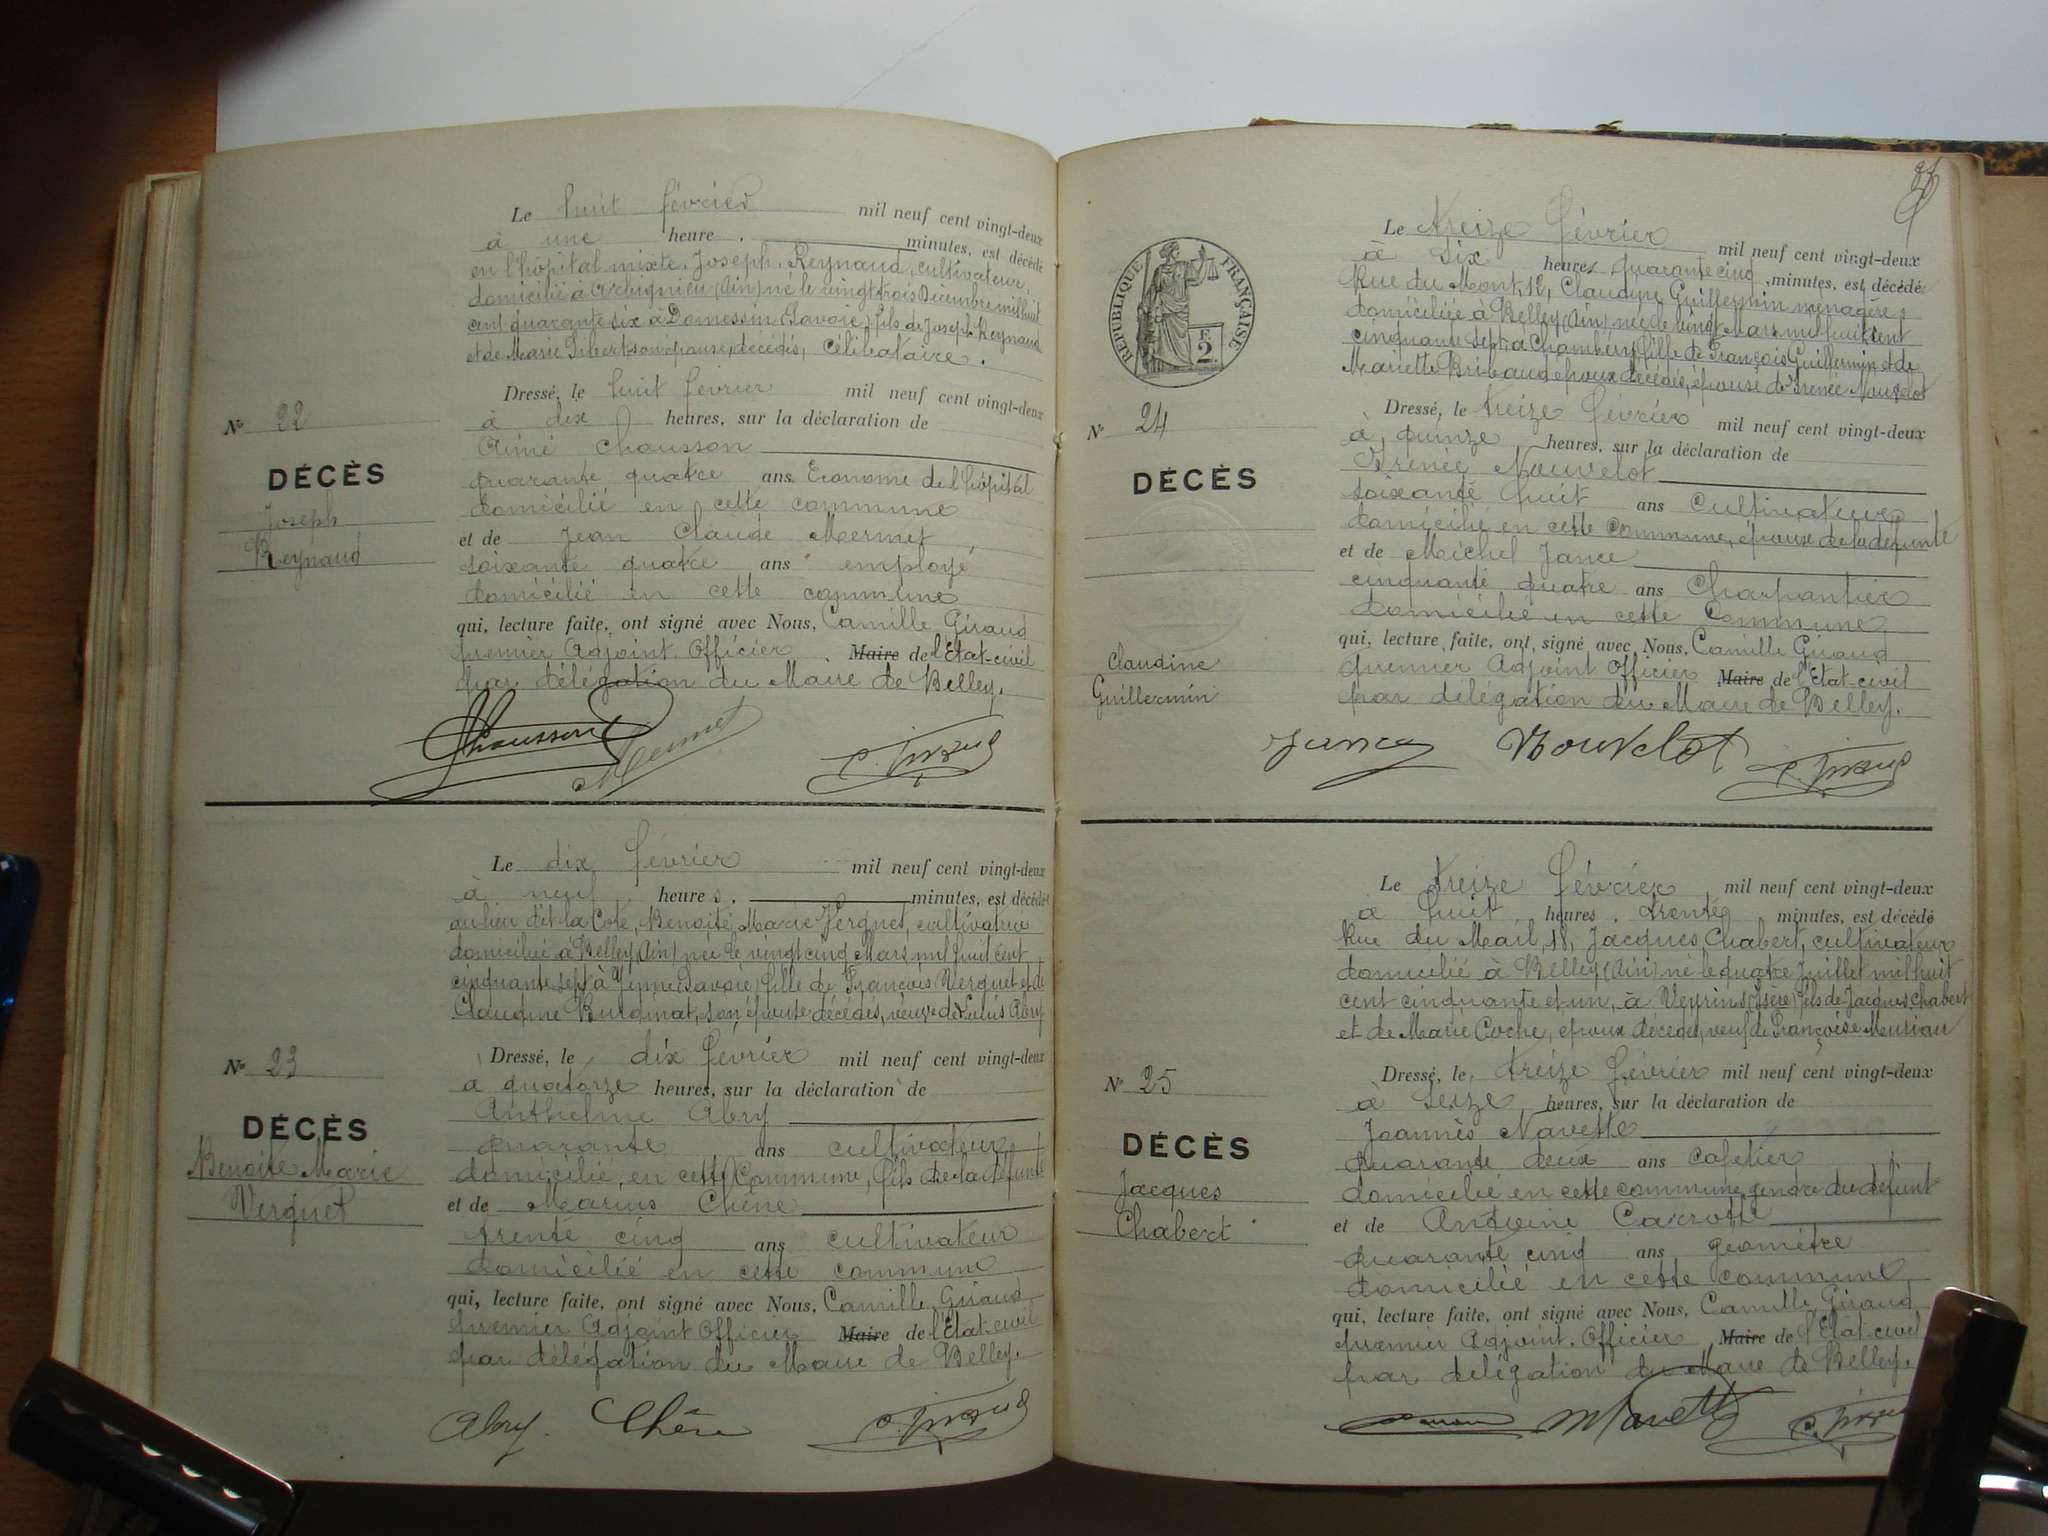 Le huit février mil neuf cent vingt-deux
à une heure , minutes, est décédé
en l'hôpital mixte, Joseph Reynaud, cultivateur,
domicilié à Arbignieu (Ain) né le vingt trois Décembre mil huit
cent quarante six à Domessin (Savoie) fils de Joseph Reynaud
et de Marie Gibert son épouse, décédés, célibataire.
Dressé, le huit février mil neuf cent vingt-deux
à dix heures, sur la déclaration de
Aimé Chausson
quarante quatre ans Econome de l'hôpital
domicilié en cette commune
et de Jean Claude Mermet
soixante quatre ans employé
domicilié en cette commune
qui, lecture faite, ont signé avec Nous, Camille Giraud
premier Adjoint. Officier Maire de l'Etat-civil
par délégation du Maire de Belley.
Nº 22
DÉCÈS
Joseph
Reynaud
Chausson Mermet C. Giraud
Le dix février mil neuf cent vingt-deux
à neuf heures, minutes, est décédée
au lieu dit la Cote, Benoite Marie Verguet, cultivatrice
domiciliée à Belley (Ain) née le vingt cinq Mars mil huit cent
cinquante sept à Yenne (Savoie) fille de François Verguet et de
Claudine Burdinat, son épouse décédés, veuve de Louis Abry
Dressé, le dix février mil neuf cent vingt-deux
à quatorze heures, sur la déclaration de
Anthelme Abry
quarante ans cultivateur
domicilié en cette Commune, fils de la défunte
et de Marius Chêne
trente cinq ans cultivateur
domicilié en cette commune
qui, lecture faite, ont signé avec Nous, Camille Giraud
premier Adjoint Officier Maire de l'Etat-civil
par délégation du Maire de Belley.
Nº 23
DÉCÈS
Benoite Marie
Verguet
Abry. Chêne C. Giraud
Le treize février mil neuf cent vingt-deux
à dix heures quarante cinq minutes, est décédée
Rue du Mont, 12, Claudine Guillermin ménagère,
domiciliée à Belley (Ain) née le vingt Mars mil huit cent
cinquante sept, à Chambéry fille de François Guillermin et de
Mariette Bribaud epoux décédés, épouse de Irenée Nouvelot
Dressé, le treize février mil neuf cent vingt-deux
à quinze heures, sur la déclaration de
Irenée Nouvelot
soixante huit ans cultivateur
domicilié en cette commune, époux de la défunte
et de Michel Jance
cinquante quatre ans Charpentier
domicilié en cette Commune
qui, lecture faite, ont signé avec Nous, Camille Giraud
premier Adjoint Officier Maire de l'Etat-civil
par délégation du Maire de Belley.
RÉPUBLIQUE FRANÇAISE
F.
2
Nº 24
DÉCÈS
Claudine
Guillermin
Jance Nouvelot C. Giraud
Le treize février mil neuf cent vingt-deux
à huit heures, trente minutes, est décédé
Rue du Mail, 18, Jacques Chabert, cultivateur
domicilié à Belley (Ain) né le quatre Juillet mil huit
cent cinquante et un, à Veyrins (Isère) fils de Jacques Chabert
et de Marie Coche, epoux décédés, veuf de Françoise Meurian
Dressé, le treize février mil neuf cent vingt-deux
à seize heures, sur la déclaration de
Joannès Navette
quarante deux ans cafetier
domicilié en cette commune, gendre du défunt
et de Antoine
quarante cinq ans géomètre
domicilié en cette commune
qui, lecture faite, ont signé avec Nous, Camille Giraud
premier Adjoint. Officier Maire de l'Etat-civil
par délégation du Maire de Belley.
Nº 25
DÉCÈS
Jacques
Chabert
Navette C. Giraud